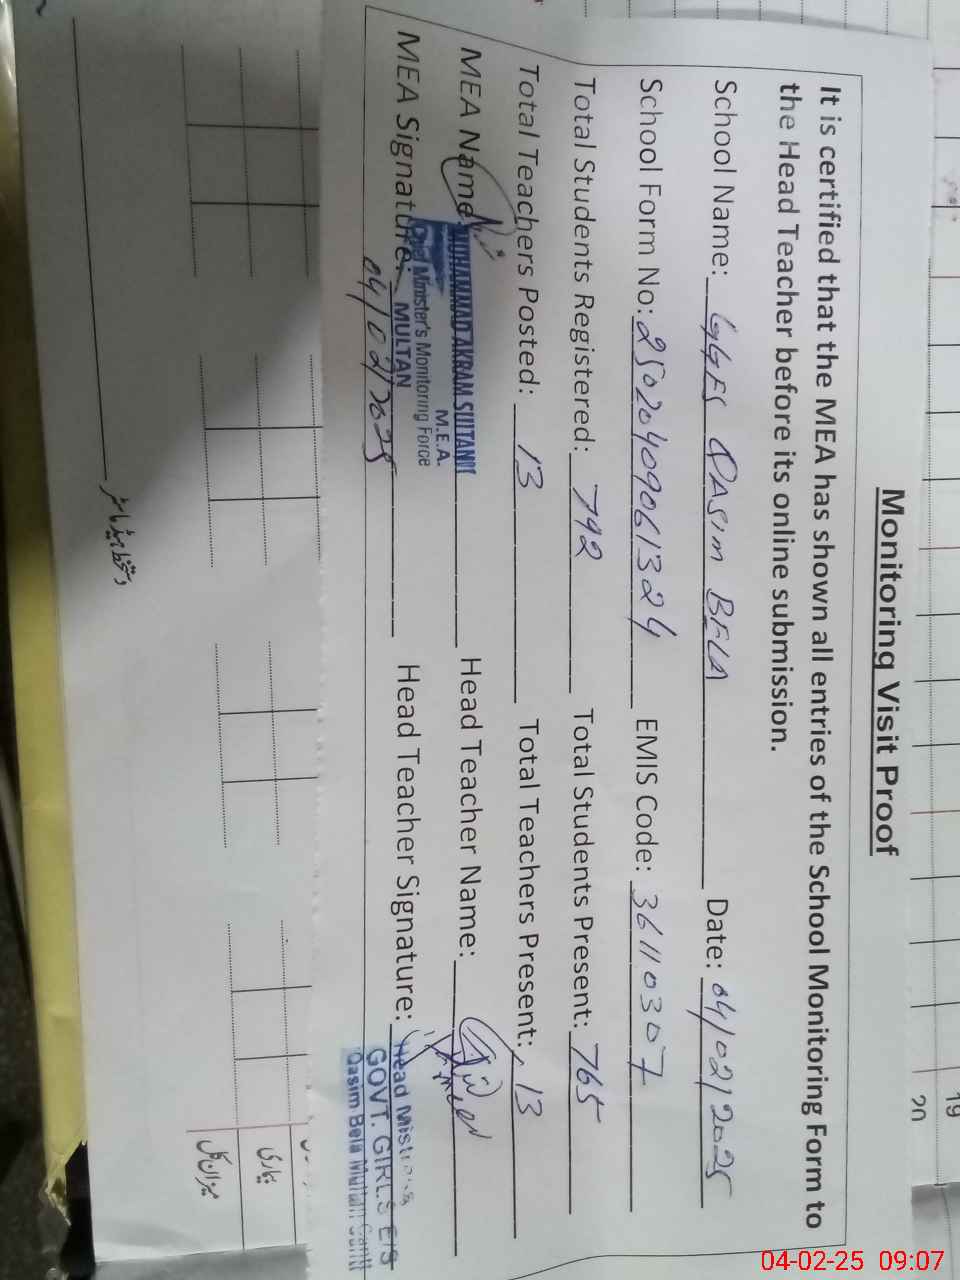 Monitoring Visit Proof
It is certified that the MEA has shown all entries of the School Monitoring Form to
the Head Teacher before its online submission.
School Name: GGES QASIM BELA Date: 04/02/2025
School Form No: 25020409061324 EMIS Code: 36110307
Total Students Registered: 792 Total Students Present: 765
Total Teachers Posted: 13 Total Teachers Present: 13
MEA Name: MUHAMMAD AKRAM SULTANI Head Teacher Name:
M.E.A.
Chief Minister's Monitoring Force
MEA Signature: MULTAN Head Teacher Signature: Head Mistress
04/02/2025
GOVT. GIRLS E/S
Qasim Bela Multan Cantt
بیماری
میزان کل
دستخط ہیڈ ماسٹر
19
20
04-02-25 09:07